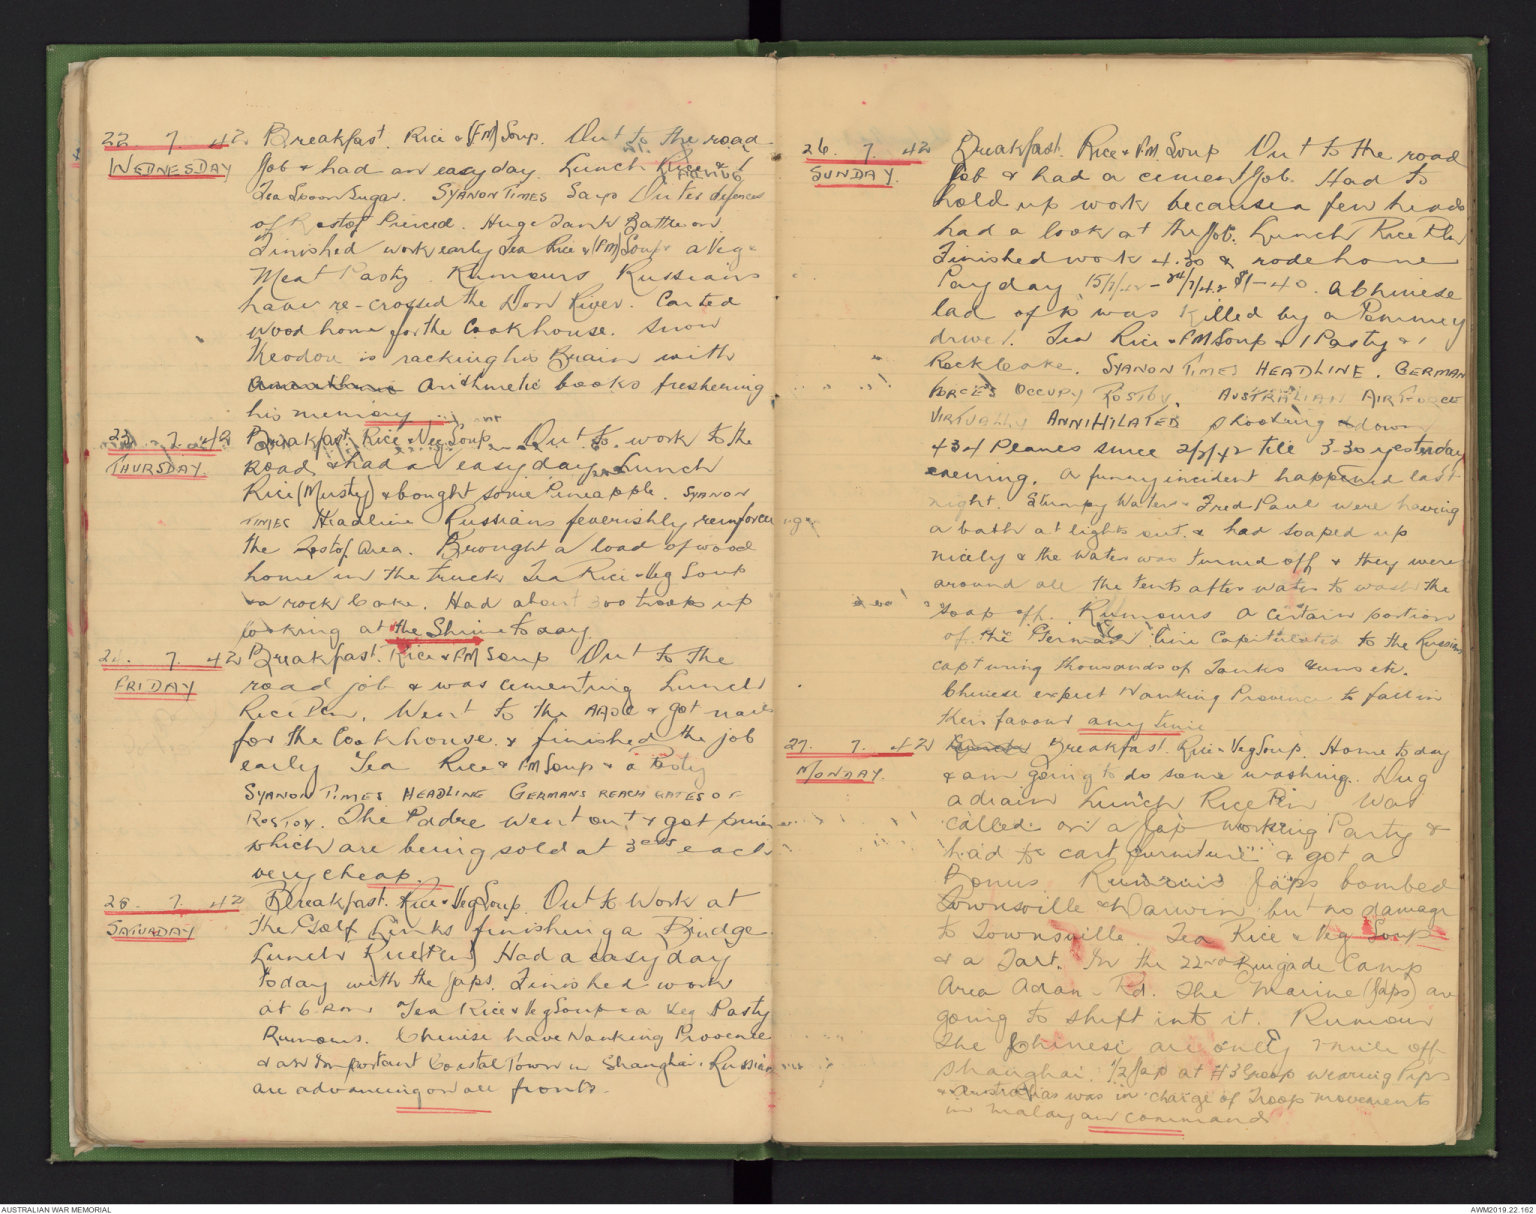 22 7. 42 Breakfast. Rice & (PM) Soup. Out to the road
WEDNESDAY Job & had an easy day. Lunch Rice & 1
Tea Spoon Sugar. SYANON TIMES Says Outer defences
of Rostof Pierced. Huge Tank Battle on.
Finished work early Tea Rice & (PM) Soup & a Veg &
Meat Pasty. Rumours Russians
have re-crossed the Don River. Carted
wood home for the Cookhouse. Snow
Theodore is racking his Brain with
arithmetic books freshening
his memory
23 7 42 Breakfast. Rice & Veg Soup. Out to work to the
THURSDAY. Road & had a easy day. Lunch
Rice (Musty) & bought some Pineapple. SYANON
TIMES Headline Russians feverishly reinforceing
the Rostof Area. Brought a load of wood
home in the truck. Tea Rice & Veg Soup
& a rock Cake. Had about 300 troops up
looking at the Shrine to day
24. 7. 42 Breakfast. Rice & PM Soup Out to the
FRIDAY road job & was cementing Lunch
Rice Pln. Went to the & got nails
for the Cookhouse. & finished the job
early Tea Rice & PM Soup & a Pasty
SYANON TIMES HEADLINE GERMANS REACH GATES OF
ROSTOV. The Padre went out & got
which are being sold at 3 cts each
very cheap.
25. 7. 42 Breakfast. Rice & Veg Soup. Out to Work at
SATURDAY The Golf Links finishing a Bridge.
Lunch Rice (Pln) Had a easy day
to day with the Japs. Finished work
at 6 pm Tea Rice & Veg Soup & a Veg Pasty
Rumours. Chinise have Nanking Provence
& an Important Coastal Town in Shanghai. Russians
are advancing on all fronts.
26. 7. 42 Breakfast. Rice & PM. Soup Out to the road
SUNDAY. Job & had a cement Job. Had to
hold up work because a few heads
had a look at the Job. Lunch Rice Pln
Finished work 4.30 & rode home
Pay day 15/7/42 - 24/7/42 $1-40. A Chinese
lad of 10 was killed by a Pommey
driver. Tea Rice & PM Soup & 1 Pasty & 1
Rock Cake. SYANON TIMES HEADLINE. GERMAN
FORCES OCCUPY ROSTOV. AUSTRALIAN AIR FORCE
VIRTUALLY ANNIHILATED shooting down
434 Planes since 2/3/42 till 3-30 yesterday
evening. A funny incident happened last
night. Stumpy Waters & Fred Paul were having
a bath at lights out. & had soaped up
nicely & the water was turned off & they were
around all the tents after water to wash the
soap off. Rumours A certain portion
of the German line Capitulated to the Russians
capturing thousands of Tanks Guns etc.
Chinese expect Nanking Provence to fall in
their favour any time
27. 7. 42 Breakfast. Rice & Veg Soup. Home to day
MONDAY. & am going to do some washing. Dug
a drain Lunch Rice Pln Was
called on a Jap working Party &
had to cart furniture & got a
Bonus. Rumours Japs bombed
Townsville & Darwin but no damage
to Townsville. Tea Rice & Veg Soup
& a Tart. In the 22nd Brigade Camp
Area Adam Rd. The Marine (Japs) are
going to shift into it. Rumour
The Chinese are only 7 mile off
Shanghai. 1/2 Jap at #3 Group wearing Pips
& Australias was in charge of Troop movements
in malayan command
AUSTRALIAN WAR MEMORIAL
AWM2019.22.162